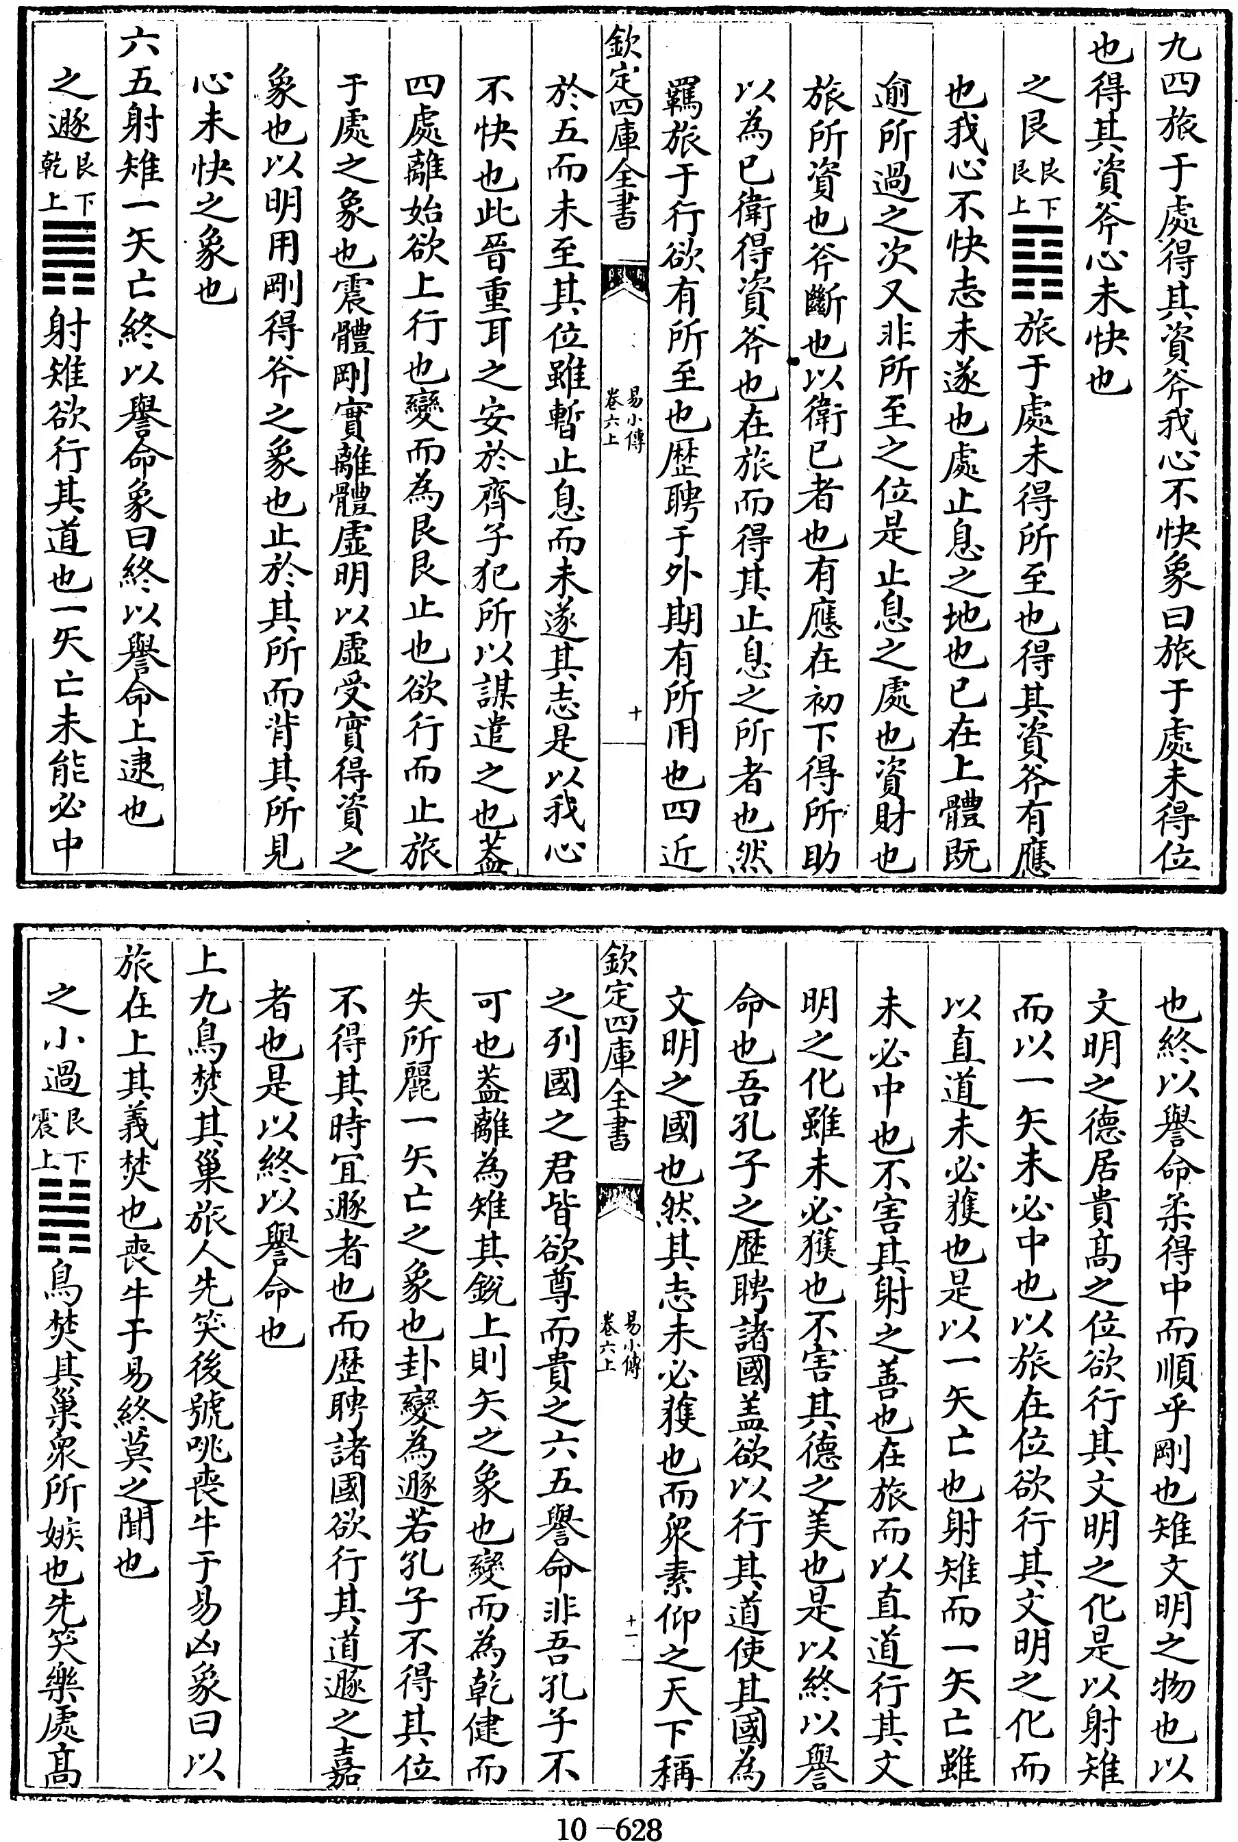 九四旅于處得其資斧我心不快象曰旅于處未得位
也得其資斧心未快也
之艮艮下艮上旅于處未得所至也得其資斧有應
也我心不快志未遂也處止息之地也已在上體既
逾所過之次又非所至之位是止息之處也資財也
旅所資也斧斷也以衛已者也有應在初下得所助
以為已衛得資斧也在旅而得其止息之所者也然
羈旅于行欲有所至也歴聘于外期有所用也四近
欽定四庫全書
易小傳
卷六上
十
於五而未至其位雖暫止息而未遂其志是以我心
不快也此晉重耳之安於齊子犯所以謀遣之也葢
四處離始欲上行也變而為艮艮止也欲行而止旅
于處之象也震體剛實離體虛明以虛受實得資之
象也以明用剛得斧之象也止於其所而背其所見
心未快之象也
六五射雉一矢亡終以譽命象曰終以譽命上逮也
之遯艮下乾上射雉欲行其道也一矢亡未能必中
也終以譽命柔得中而順乎剛也雉文明之物也以
文明之德居貴髙之位欲行其文明之化是以射雉
而以一矢未必中也以旅在位欲行其文明之化而
以直道未必獲也是以一矢亡也射雉而一矢亡雖
未必中也不害其射之善也在旅而以直道行其文
明之化雖未必獲也不害其德之美也是以終以譽
命也吾孔子之歴聘諸國盖欲以行其道使其國為
文明之國也然其志未必獲也而衆素仰之天下稱
欽定四庫全書
易小傳
卷六上
十一
之列國之君皆欲尊而貴之六五譽命非吾孔子不
可也葢離為雉其銳上則矢之象也變而為乾健而
失所麗一矢亡之象也卦變為遯若孔子不得其位
不得其時宜遯者也而歴聘諸國欲行其道遯之嘉
者也是以終以譽命也
上九鳥焚其巢旅人先笑後號咷喪牛于易凶象曰以
旅在上其義焚也喪牛于易終莫之聞也
之小過艮下震上鳥焚其巢衆所嫉也先笑樂處髙
10-628